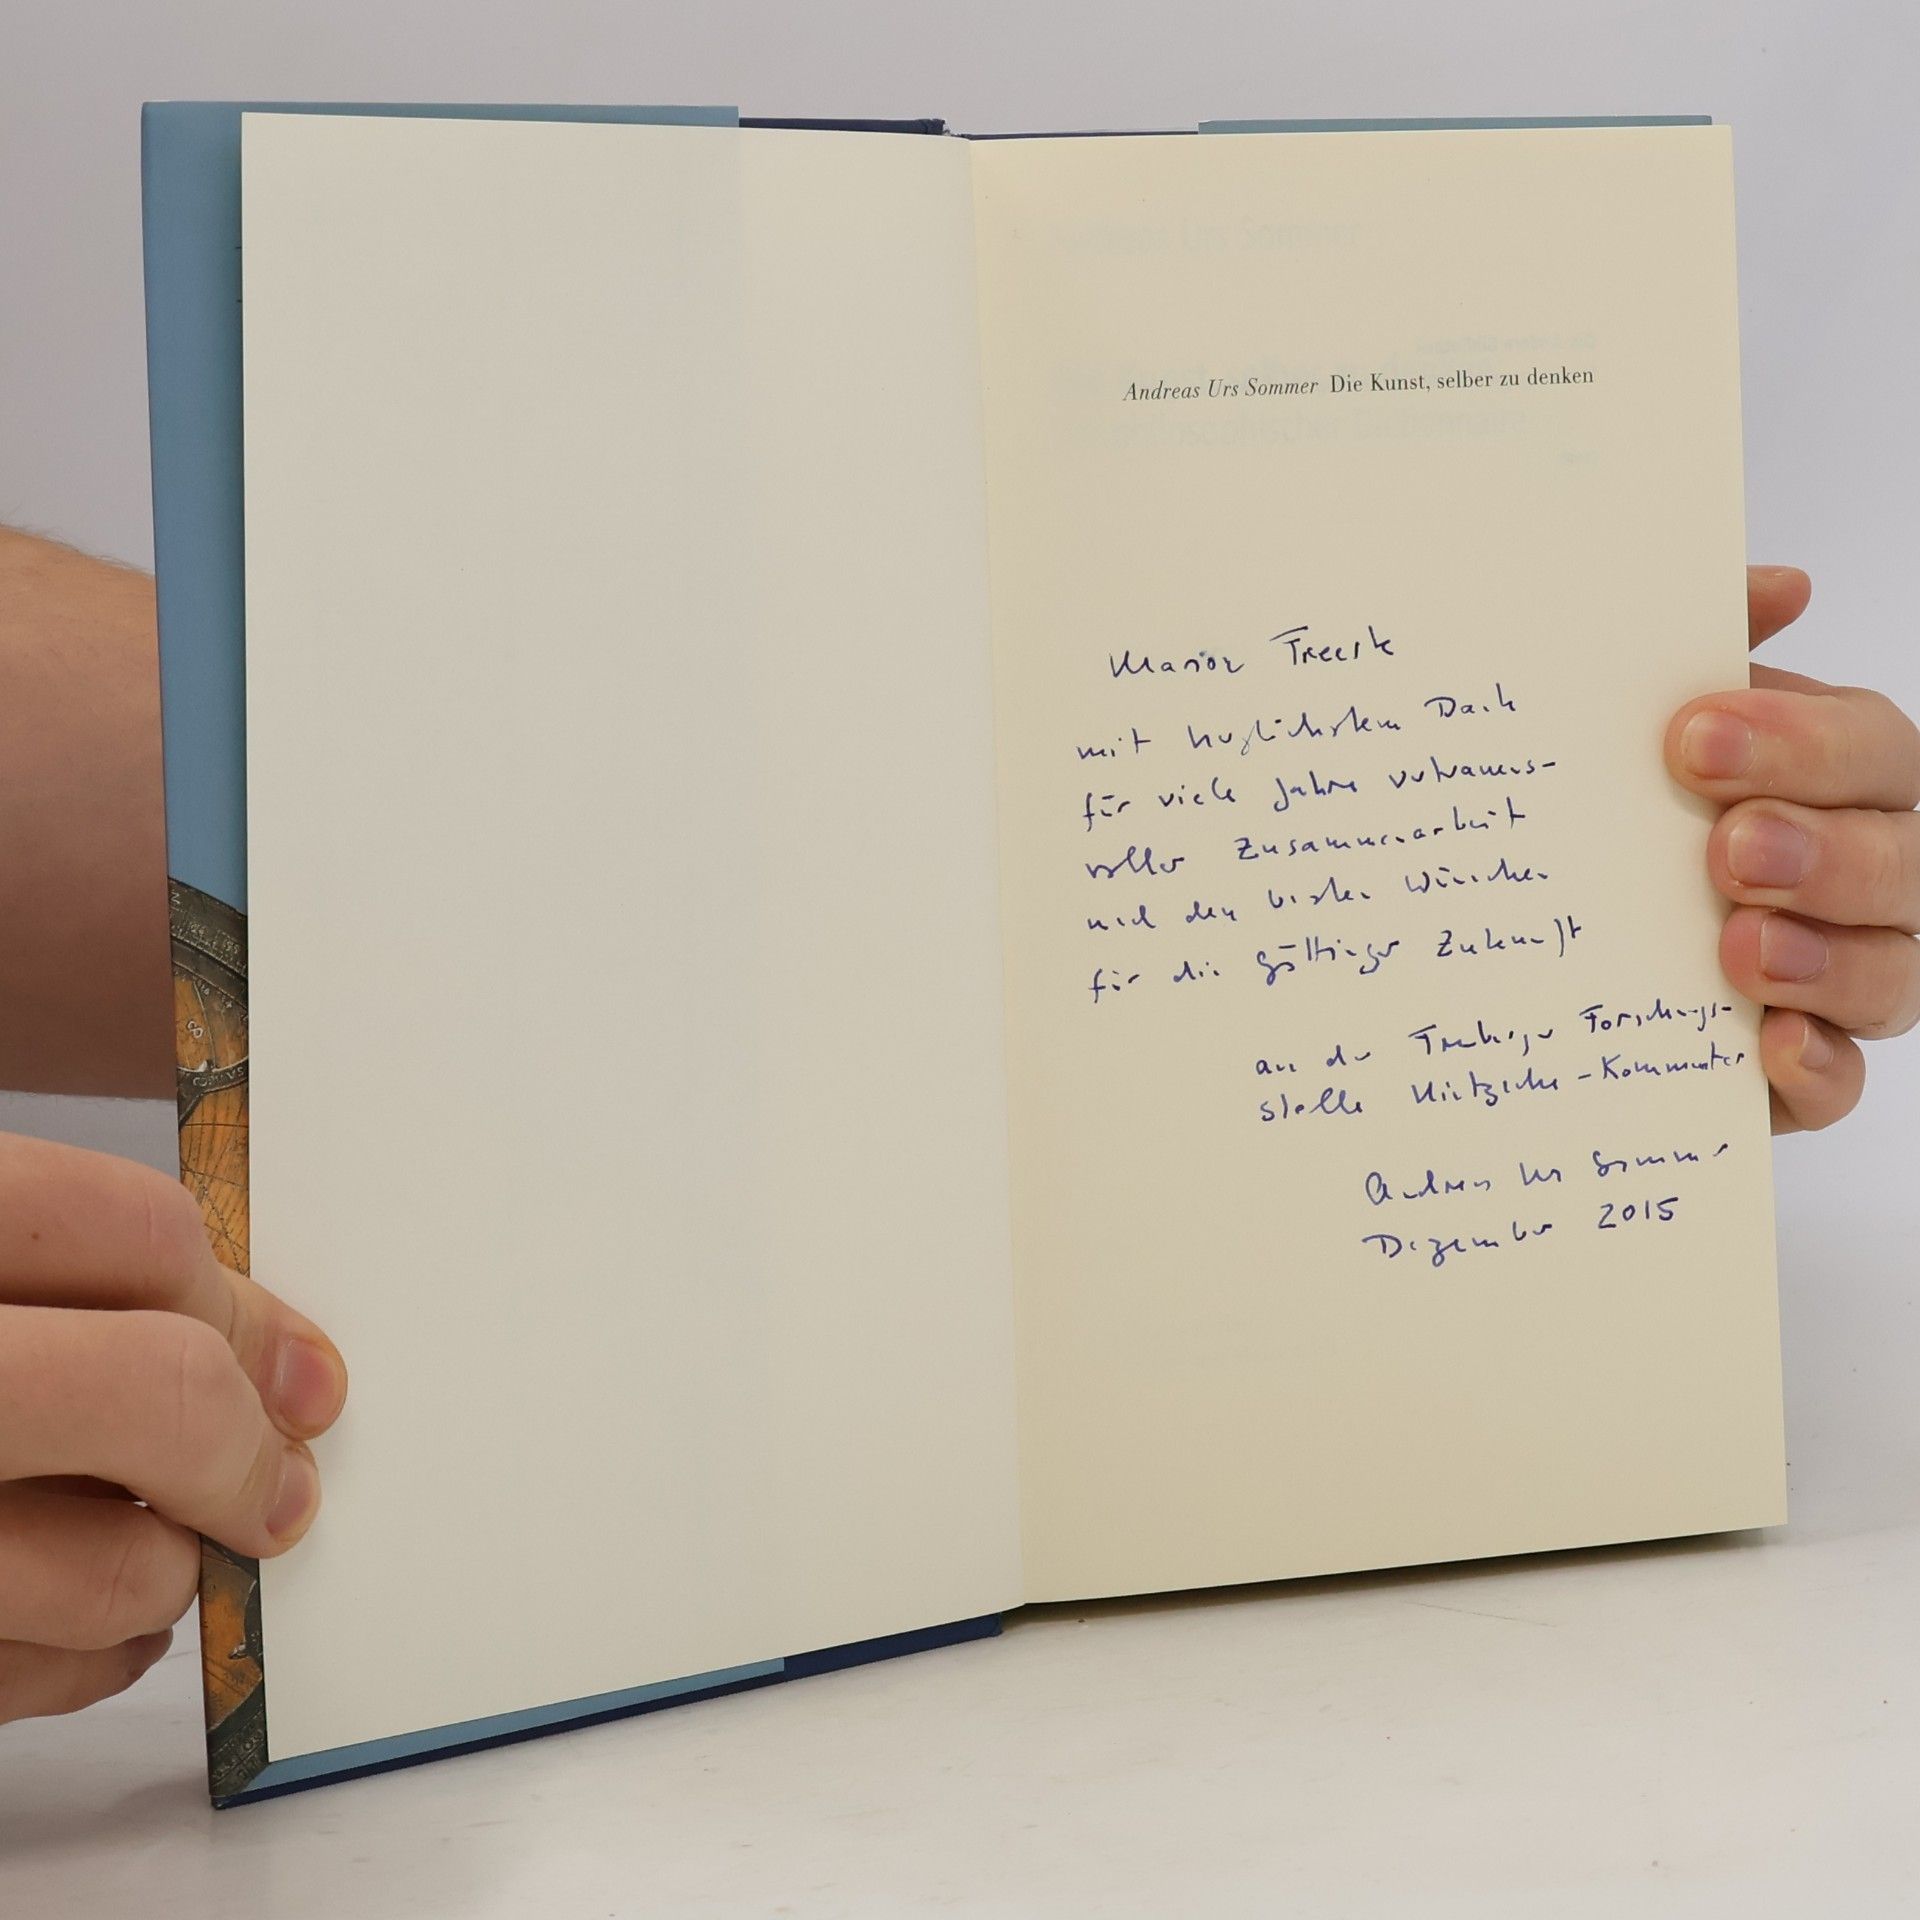 Andreas Urs Sommer Die Kunst, selber zu denken
mit herzlichstem Dank
für viele Jahre vertrauens-
voller Zusammenarbeit
und den besten Wünschen
für die Göttinger Zukunft
an der Freiburger Forschungs-
stelle Nietzsche-Kommentar
Andreas Urs Sommer
Dezember 2015